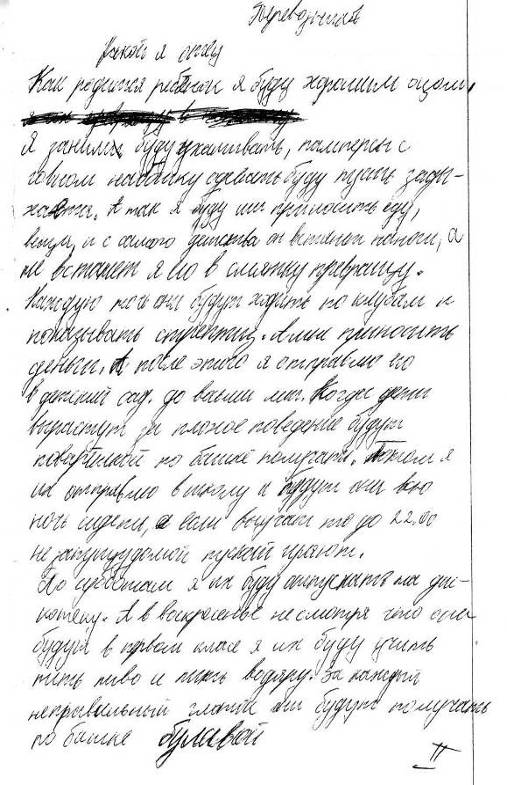 Переводчий
Какой я отец
Как родится ребенок я буду хорошим оцом,
я занимя буду ухаживать, памперсы с
говном набошку одевать буду пусть зады-
хаетса. А так я буду им приносить еду,
вещи, и с самого детства он встанет наноги, а
не встанет я его в смятку превращу.
Каждую ночь они будут ходить по клубам и
показывать стриптиз. А мне приносить
деньги. А после этого я отправлю его
в детский сад. до восьми лет. Когда дети
вырастут за плохое поведение будут
по башке получать. Потом я
их отправлю в школу и будут они всю
ночь сидеть, а если выучат то до 22.00
незапущу домой пускай гуляют.
По субботам я их буду отпускать на дис-
котеку. А в воскресенье несмотря что они
будут в первом класе я их буду учить
пить пиво и пить водяру. За каждый
неправильный глоток они будут получать
по башке булавой
II